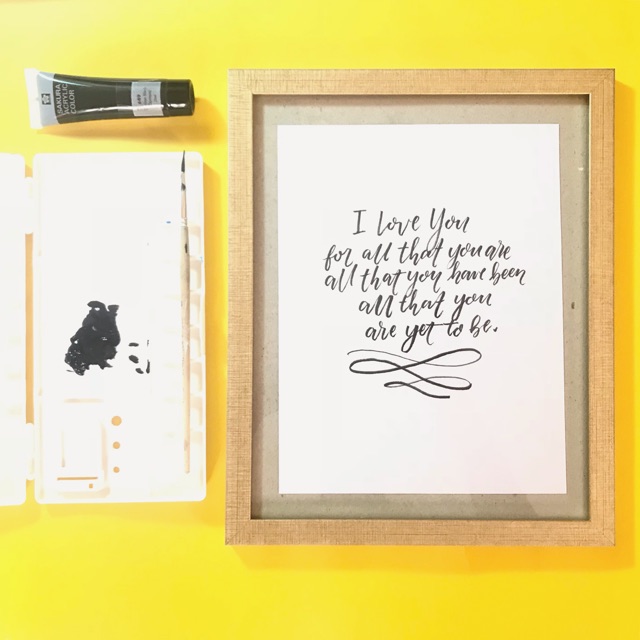 SAKURA
ACRYLIC
COLOR
I love You
for all that you are
all that you have been
all that you
are yet to be.